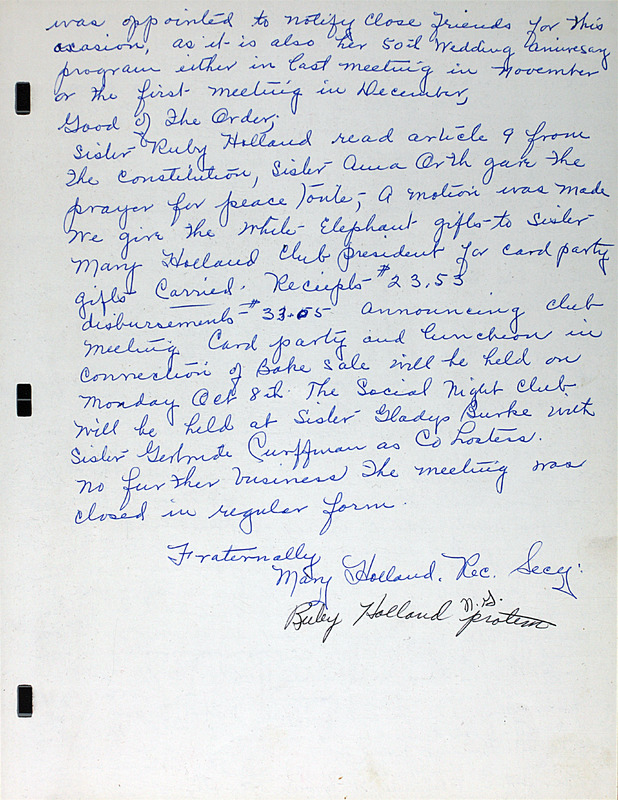 was appointed to notify close friends for this
ocasion, as it is also her 50th Wedding Aniversary
program either in last meeting in November
or the first meeting in December,
Good of The Order;
Sister Ruby Holland read article 9 from
the constitution, Sister Anna Orth gave the
prayer for peace Tonite, A motion was made
We give the White Elephant gifts to Sister
Mary Holland Club president for card party
gifts Carried. Receipts #23.53
disbursements - #33.05 Announcing club
meeting Card party and luncheon in
connection of Bake Sale will be held on
Monday Oct 8th. The Social Night Club
will be held at Sister Gladys Burke with
Sister Gertrude Curffman as Co hosters.
no further business the meeting was
closed in regular form.
Fraternally
Mary Holland. Rec. Secy:
Ruby Holland N.G. protem